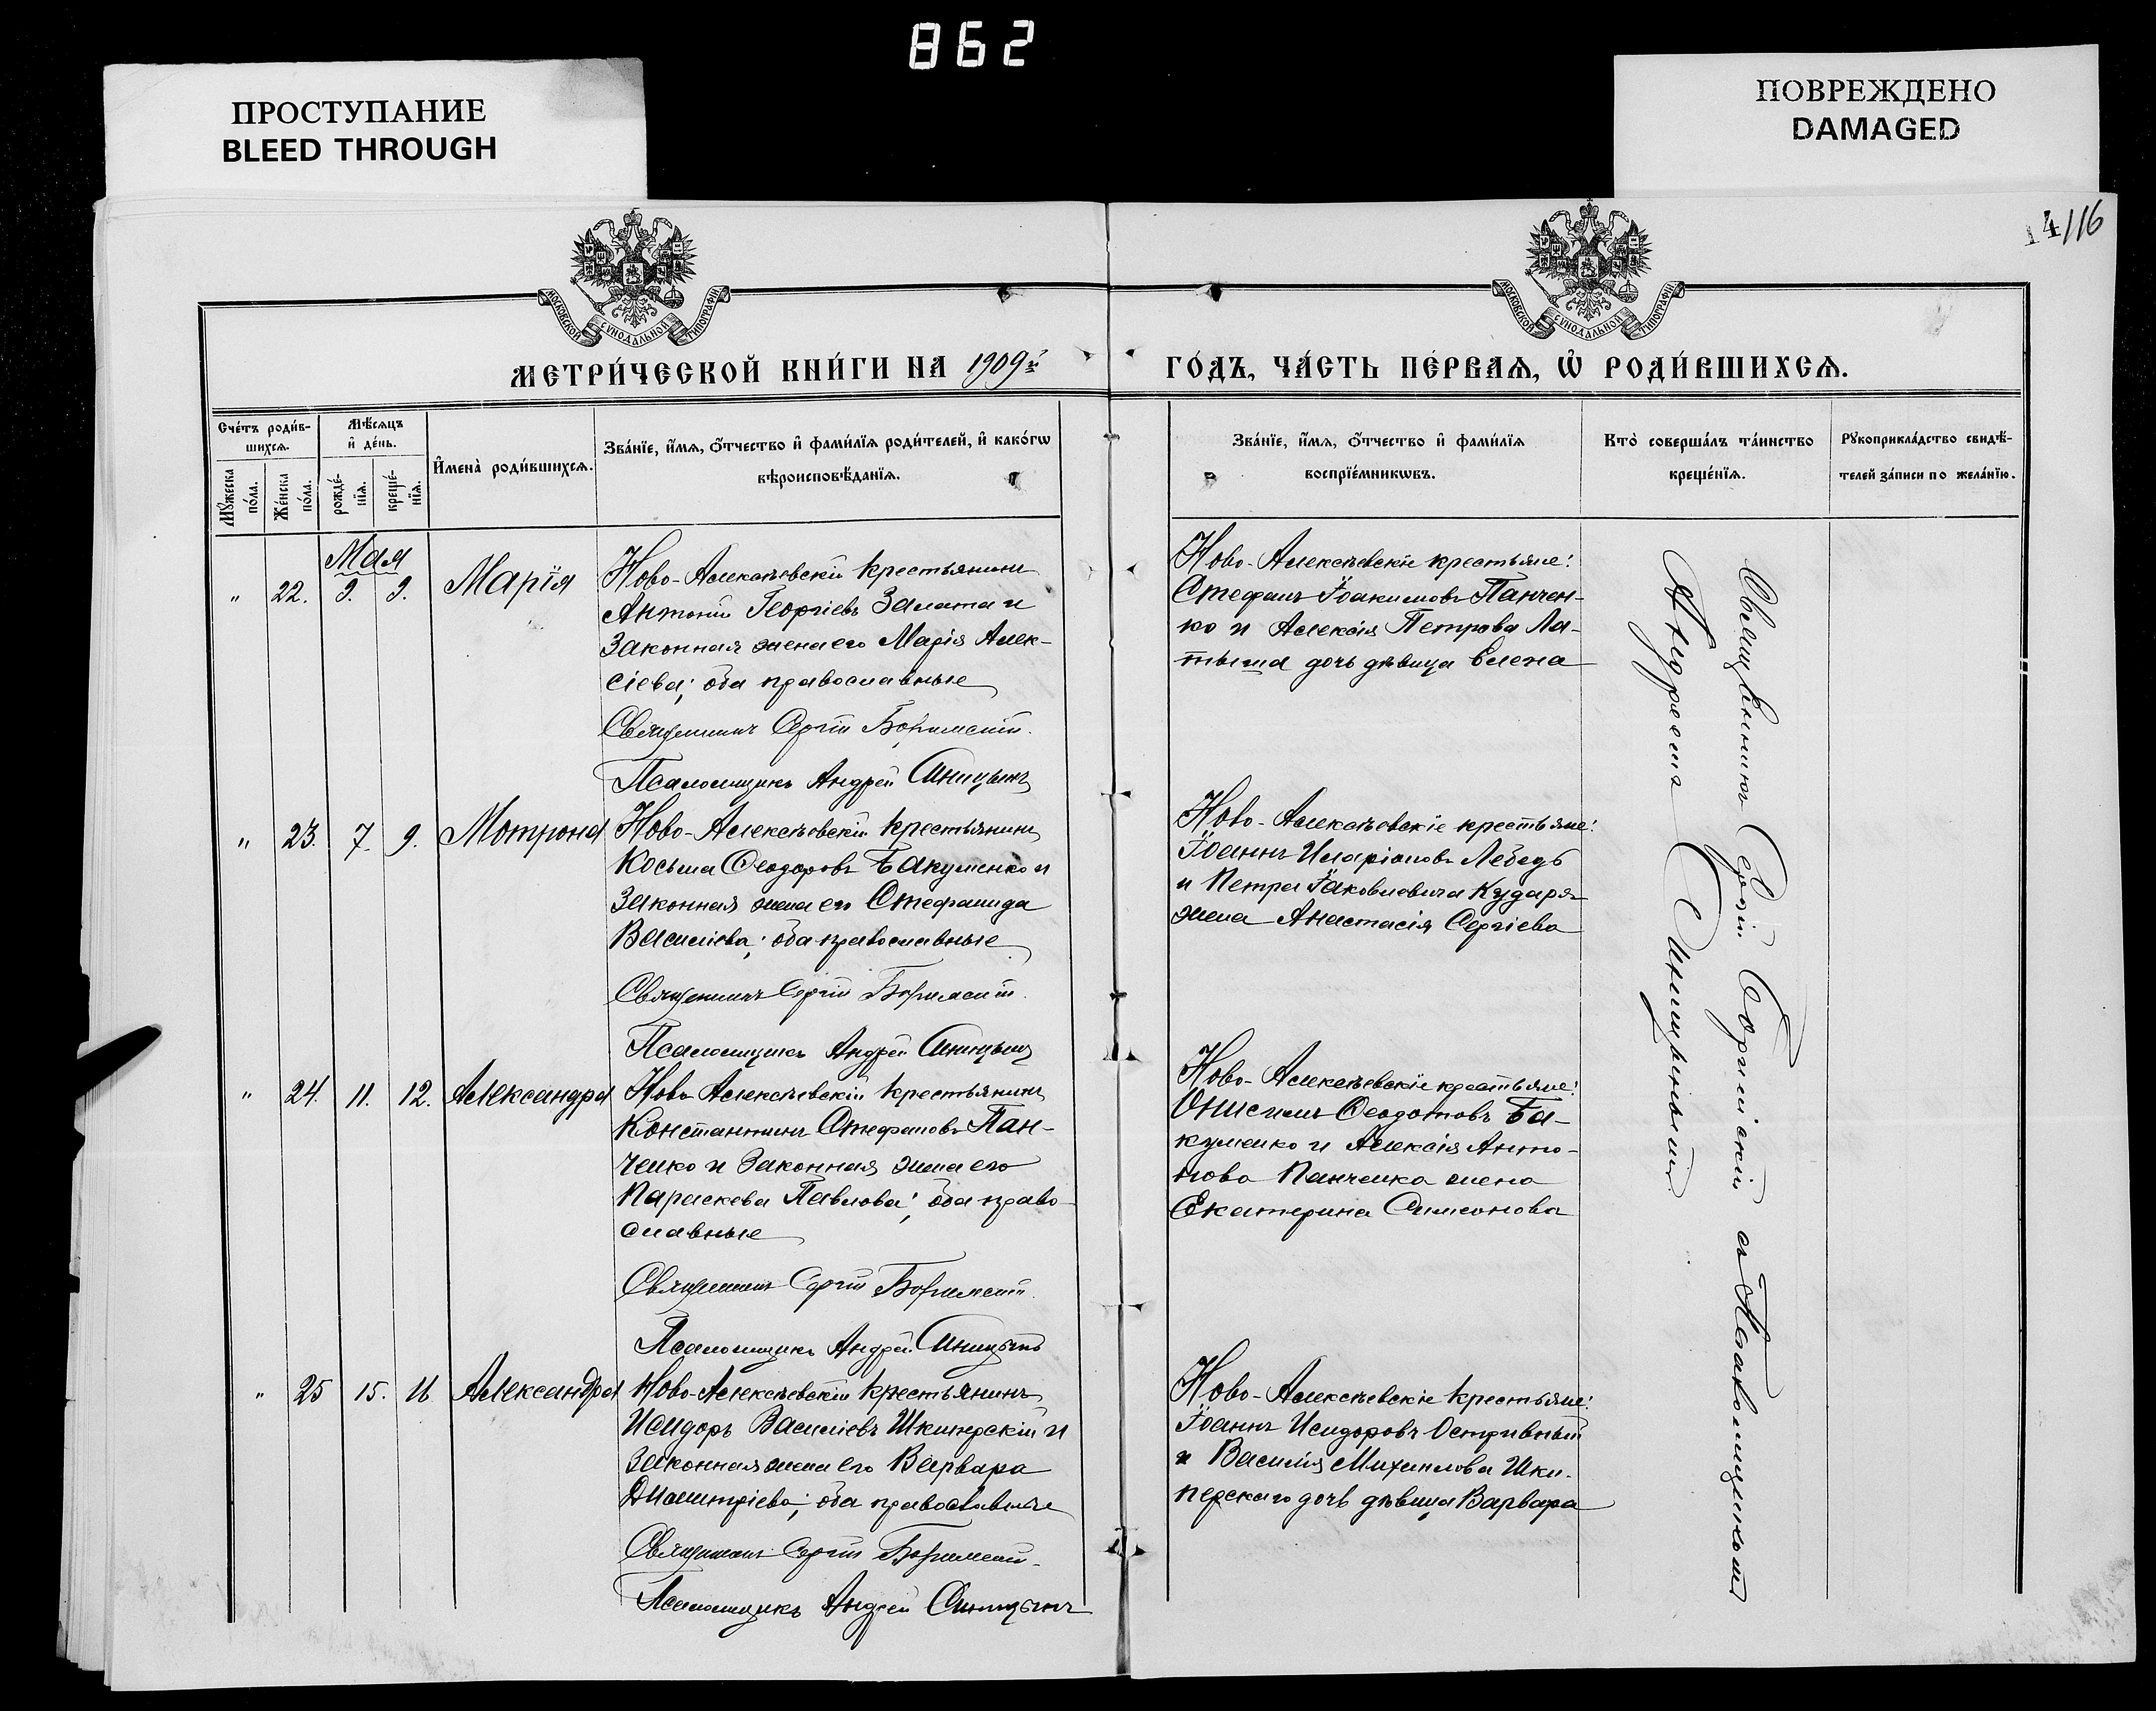 862
ПРОСТУПАНИЕ
BLEED THROUGH
ПОВРЕЖДЕНО
DAMAGED
14/116
МОСКОВСКОЙ СѴНОДАЛЬНОЙ ТИПОГРАФІИ
МОСКОВСКОЙ СѴНОДАЛЬНОЙ ТИПОГРАФІИ
МЕТРИ́ЧЕСКОЙ КНИ́ГИ НА 1909й
ГО́ДЪ, ЧА́СТЬ ПЕ́РВАѦ, Ѡ҆ РОДИ́ВШИХСѦ.
Сче́тъ роди́в-
шихсѧ.
Мꙋ́жеска
по́ла.
Же́нска
по́ла.
Мѣ́сѧцъ
и҆ де́нь.
рожде́-
нїѧ.
креще́-
нїѧ.
И҆мена̀ роди́вшихсѧ.
Зва́нїе, и҆́мѧ, ѻ҆́тчество и҆ фами́лїѧ роди́телей, и҆ како́гѡ
вѣроисповѣ́данїѧ.
Зва́нїе, и҆́мѧ, ѻ҆́тчество и҆ фами́лїѧ
воспрїе́мникѡвъ.
Кто̀ соверша́лъ та́инство
креще́нїѧ.
Рꙋкоприкла́дство свидѣ́-
телей за́писи по жела́нїю.
Мая
" 22. 9. 9. Марія
Ново-Алексѣевскій крестьянинъ
Антоній Георгіевъ Залата и
законная жена его Марія Алек-
сіева; оба православные
Священникъ Сергій
Псаломщикъ Андрей Синицынъ
Ново-Алексѣевскіе крестьяне:
Стефанъ Іоакимовъ Панчен-
ко и Алексія Петрова Ла-
тыша дочь дѣвица Елена
" 23. 7. 9. Мотрона
Ново-Алексѣевскій крестьянинъ
Косьма Ѳеодоровъ Бакуменко и
законная жена его Стефанида
Василіева; оба православные
Священникъ Сергій
Псаломщикъ Андрей Синицынъ
Ново-Алексѣевскіе крестьяне:
Іоаннъ Иларіоновъ Лебедь
и Петра Іаковлевича Кударя
жена Анастасія Сергіева
" 24. 11. 12. Александра
Ново-Алексѣевскій крестьянинъ
Константинъ Стефановъ Пан-
ченко и законная жена его
Параскева Павлова; оба право-
славные
Священникъ Сергій
Псаломщикъ Андрей Синицынъ
Ново-Алексѣевскіе крестьяне:
Онисимъ Ѳеодотовъ Ба-
куменко и Алексія Анто-
нова Панченка жена
Екатерина Симеонова
" 25 15. 16 Александра
Ново-Алексѣевскій крестьянинъ
Исидоръ Василіевъ Шкиперскій и
законная жена его Варвара
Димитріева; оба православные
Священникъ Сергій
Псаломщикъ Андрей Синицынъ
Ново-Алексѣевскіе крестьяне:
Іоаннъ Исидоровъ Остривный
и Василія Михаилова Шки-
перскаго дочь дѣвица Варвара
Священникъ Сергій съ Псаломщикомъ
Андреемъ Синицынымъ